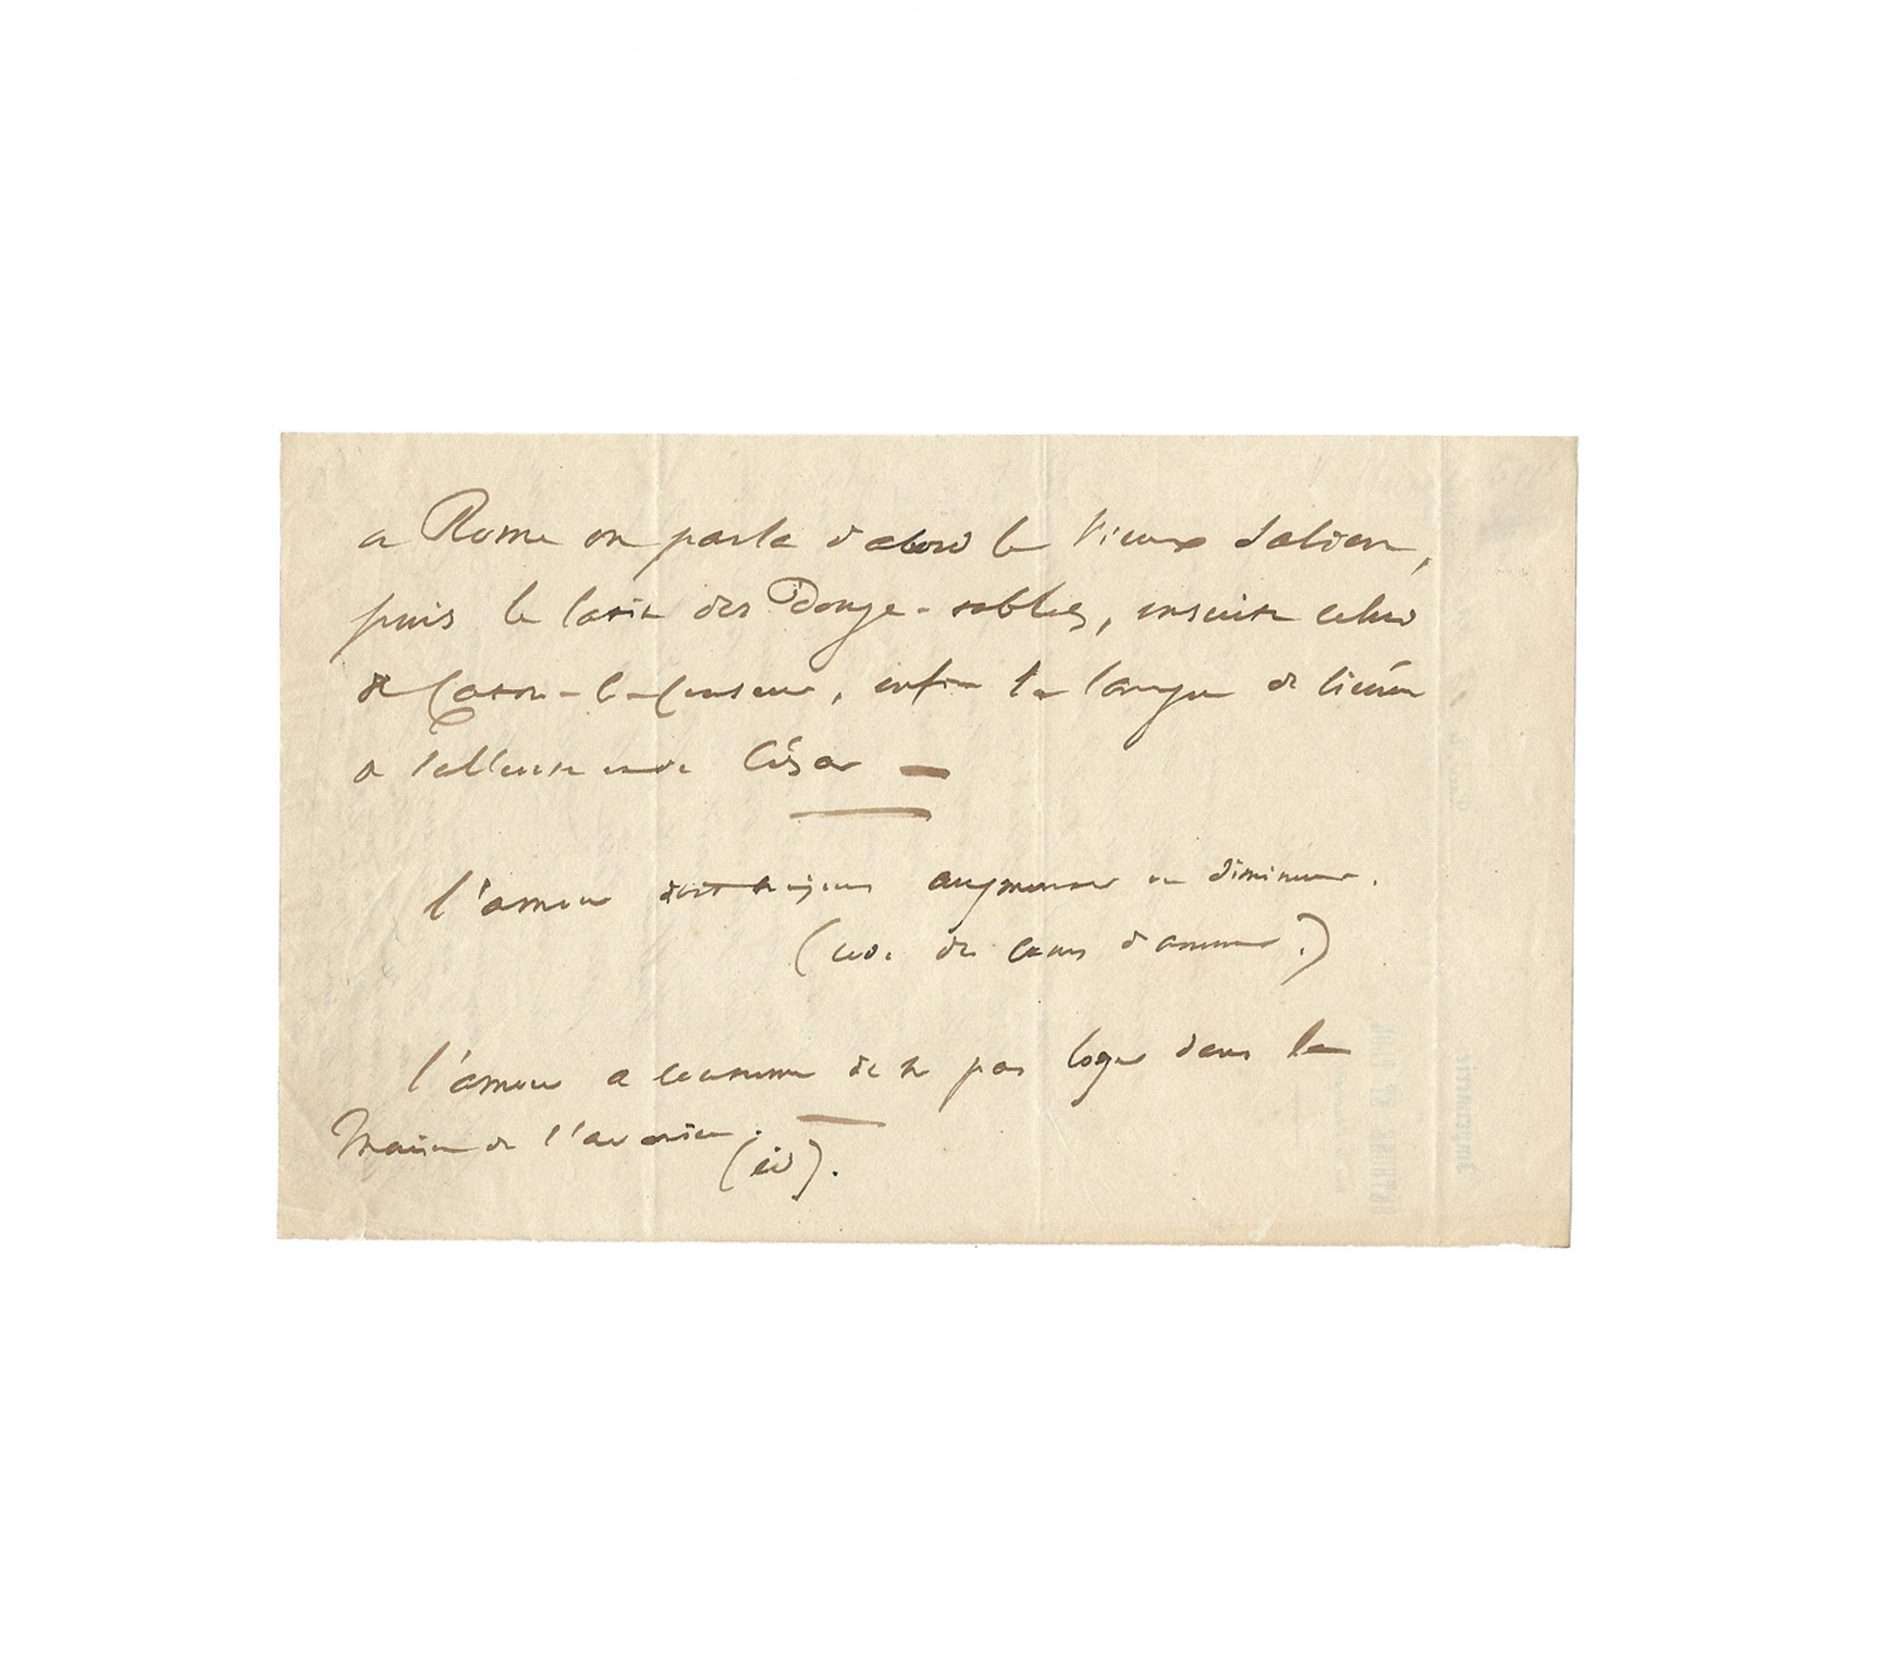 a Rome on parla d'abord le vieux Salien,
puis le latin des Douze-tables, ensuite celui
de Caton-le-Censeur, enfin la langue de
a César —
l'amour doit toujours augmenter ou diminuer.
(code des cours d'amour.)
l'amour a coutume de ne pas loger dans la
Maison de l'avarice.
(id).
Imprimerie